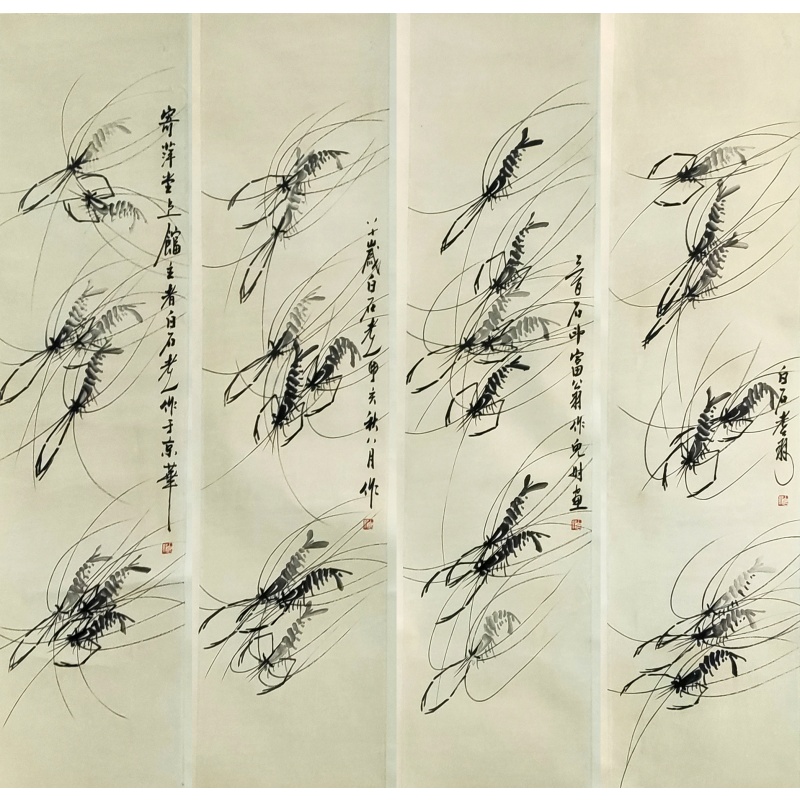 白石老翁
三百石印富翁作兒时畫
八十歲白石老人甲亥秋八月作
寄萍堂上館主者白石老人作于京華